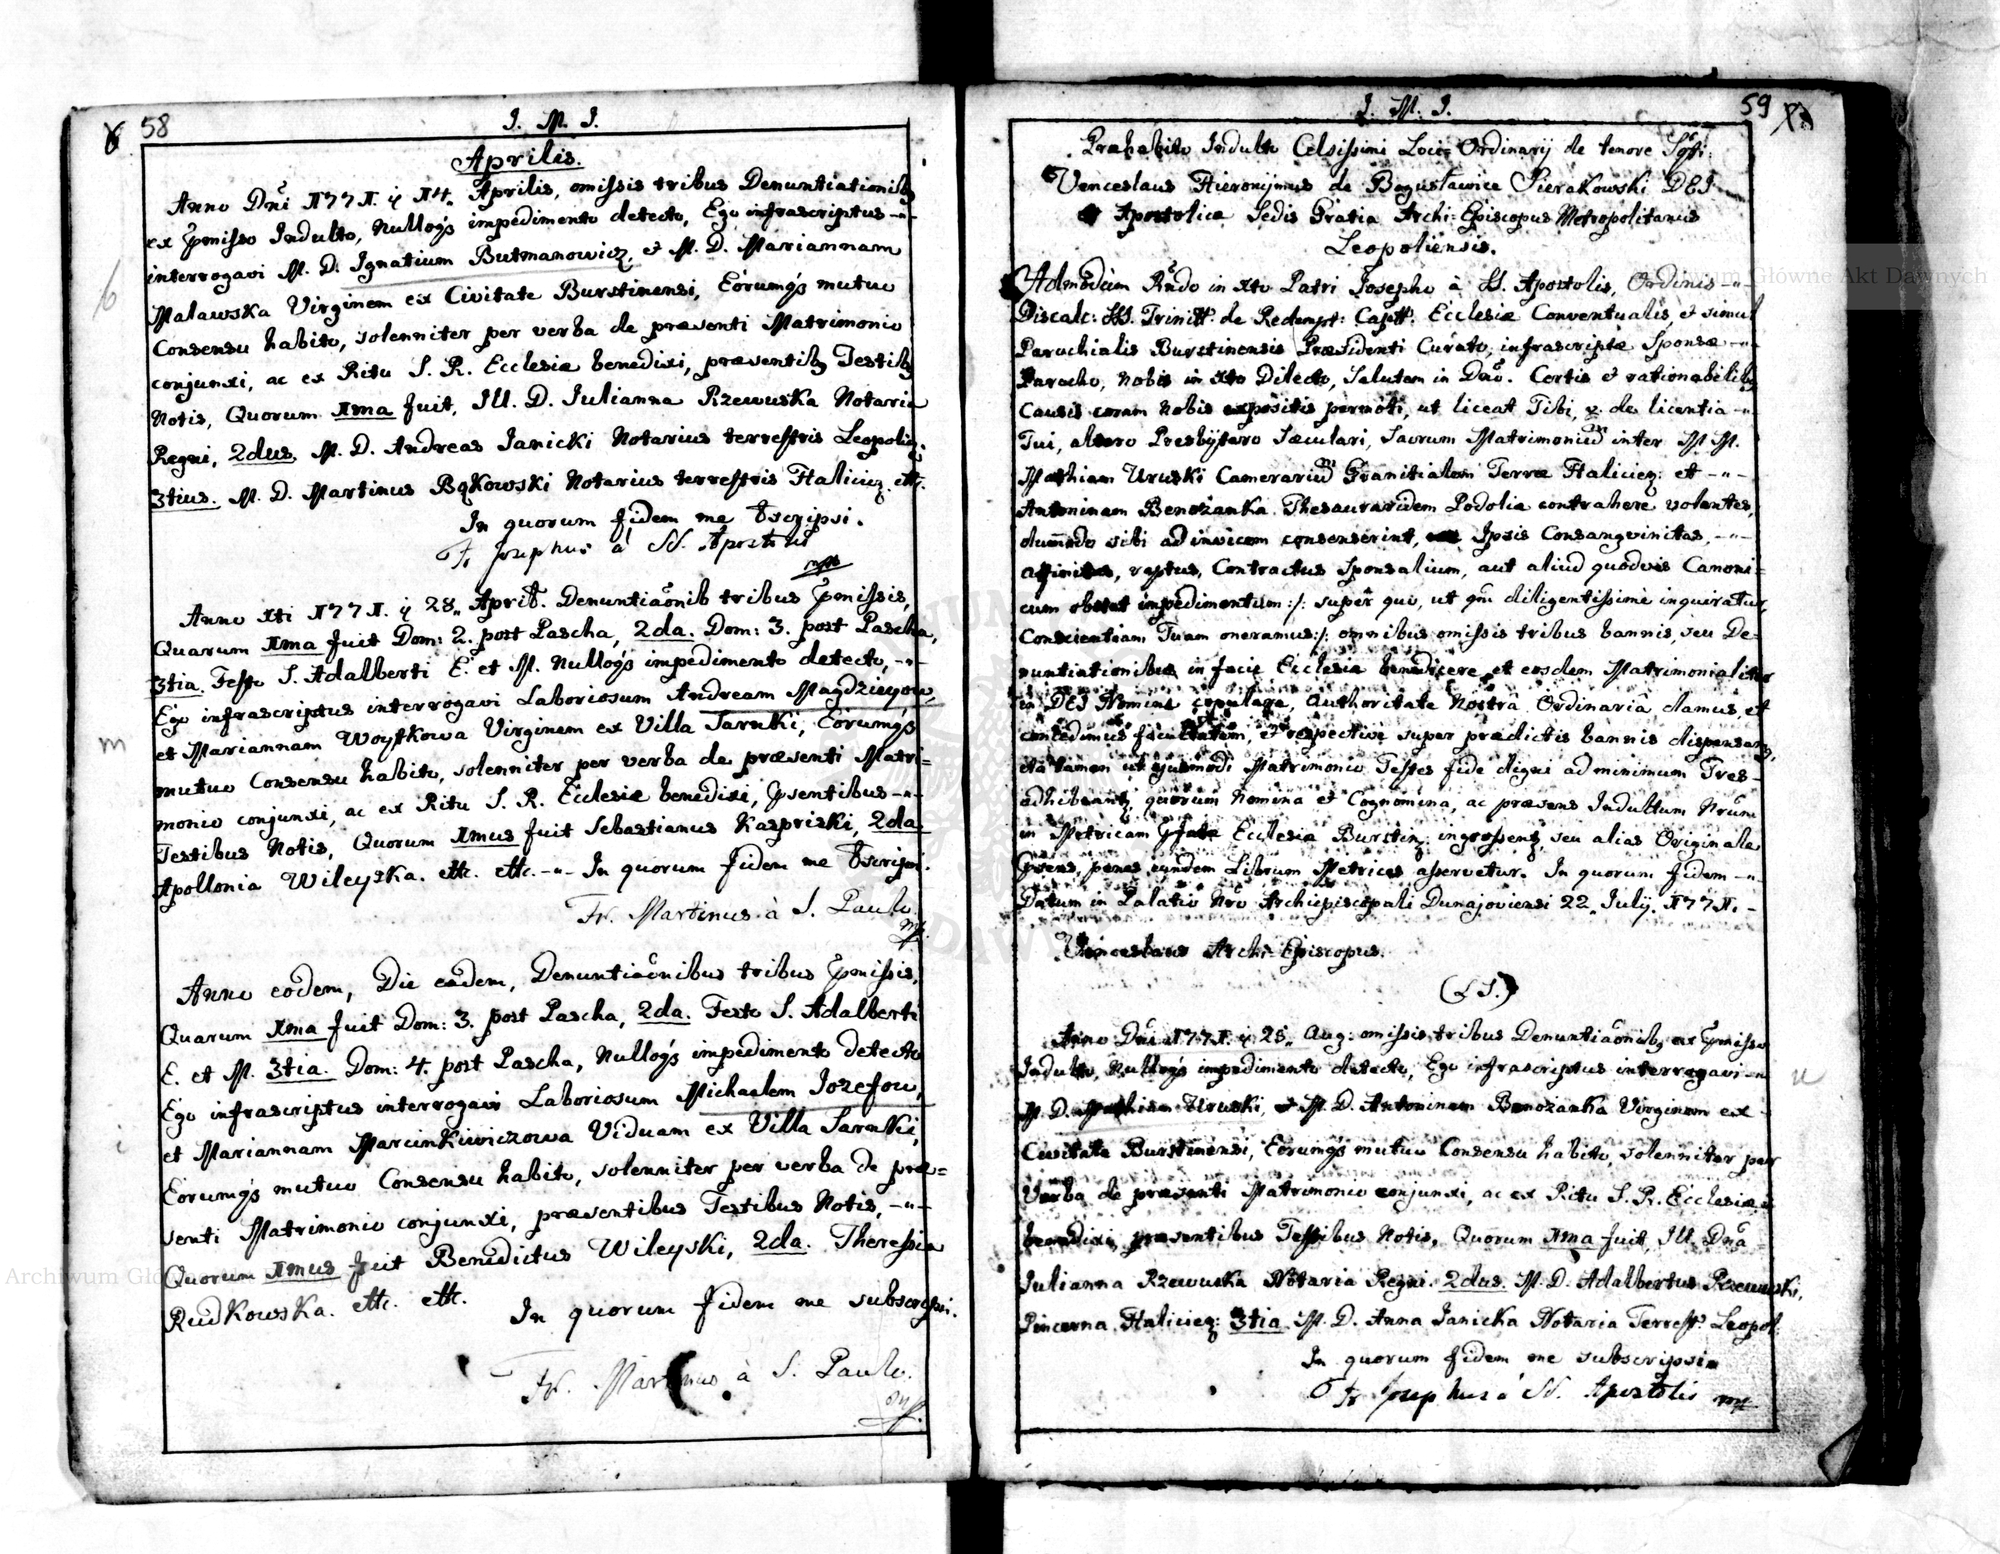 58
J. M. J.
Aprilis.
Anno Dni 1771. ę 14. Aprilis, omissis tribus Denuntiationibg
ex pmisso Indulto, Nullogs impedimento detecto, Ego infrascriptus -"-
interrogavi M. D. Ignatium Butmanowicz, et M. D. Mariannam
Malawska Virginem ex Civitate Burstinensi, Eorumgs mutuo
Consensu habito, solenniter per verba de præsenti Matrimonio
conjunxi, ac ex Ritu S. R. Ecclesiæ benedixi, præsentibg Testibg
Notis, Quorum 1ma fuit, Ill. D. Julianna Rzewuska Notaria
Regni, 2dus. M. D. Andreas Janicki Notarius terrestris Leopolię.
3tius. M. D. Martinus Bąkowski Notarius terrestris Halicię. ettc.
In quorum fidem me sscripsi.
Fr Josephus à SS. Apostolis
mp
Anno xti 1771. ę 28. April. Denuntiaonib tribus pmissis,
Quarum 1ma fuit Dom: 2. post Pascha, 2da. Dom: 3. post Pascha,
3tia. Festo S. Adalberti E. et M. Nullogs impedimento detecto, -"-
Ego infrascriptus interrogavi Laboriosum Andream Magdzieyow,
et Mariannam Woytkowa Virginem ex Villa Sarnki, Eorumgs
mutuo Consensu habito, solenniter per verba de præsenti Matri=
monio conjunxi, ac ex Ritu S. R. Ecclesiæ benedixi, psentibus -"-
Testibus Notis, Quorum 1mus fuit Sebastianus Kaspriski, 2da
Apollonia Wileyska. ettc. ettc. -"- In quorum fidem me sscripsi.
Fr. Martinus à S. Paulo
mp.
Anno eodem, Die eadem, Denuntiaonibus tribus pmissis,
Quarum 1ma fuit Dom: 3. post Pascha, 2da. Festo S. Adalberti
E. et M. 3tia. Dom: 4. post Pascha, Nullogs impedimento detecto
Ego infrascriptus interrogavi Laboriosum Michaelem Jozefow,
et Mariannam Marcinkiewiczowa Viduam ex Villa Sarnki,
Eorumgs mutuo Consensu habito, solenniter per verba de præ=
senti Matrimonio conjunxi, præsentibus Testibus Notis, -"-
Quorum 1mus fuit Benedictus Wileyski, 2da. Theressia
Rudkowska. ettc. ettc. In quorum fidem me subscripsi.
Fr. Martinus à S. Paulo.
mp.
59
J. M. J.
Præhabito Indulto Celsissimi Loci Ordinarij de tenore
Venceslaus Hieronijmus de Bogusławice Sierakowski DEI
et Apostolicæ Sedis Gratia Archi-Episcopus Metropolitanus
Leopoliensis.
Admodum Rndo in xto Patri Josepho à SS. Apostolis, Ordinis -"-
Discalc: SSS. Trinitt. de Redempt: Captt: Ecclesiæ Conventualis, et simul
Parochialis Burstinensis Præsidenti Curato, infrascriptæ Sponsæ -"-
Parocho, Nobis in xto Dilecto, Salutem in Dno. Certis et rationabilibg
Causis coram Nobis expositis permoti, ut liceat Tibi, v. de licentia -"-
Tui, altero Presbijtero Sæculari, Sacrum Matrimonium inter M M.
Mathiam Uruski Camerarium Granitialem Terræ Halicię: et -"-
Antoninam Benożanka Thesauraridem Podoliæ contrahere volentes,
dummodo sibi ad invicem consenserint, Ipsis Consangvinitas, -"-
affinitas, raptus, Contractus Sponsalium, aut aliud quodvis Canoni=
cum obstet impedimentum :/: super quo, ut qm diligentissime inquiratur,
Conscientiam Tuam oneramus:/: omnibus omissis tribus bannis, seu De=
nuntiationibus in facie Ecclesiæ benedicere, et eosdem Matrimonialiter
in DEI Nomine copulare, Authoritate Nostra Ordinaria damus, et
concedimus facultatem, et respective super prædictis bannis dispensamg,
ita tamen ut ejusmodi Matrimonio Testes fide digni ad minimum Tres -
adhibeantg, quorum Nomina et Cognomina, ac præsens Indultum Nrum
in Metricam pfatæ Ecclesiæ Burstin: ingrossentg, seu alias Originale
psens, penes eundem Librum Metrices asservetur. In quorum fidem -"-
Datum in Palatio Nro Archiepiscopali Dunajoviensi 22. Julij. 1771. -
Venceslaus Archi-Episcopus.
(L S.)
Anno Dni 1771. ę 25. Aug: omissis tribus Denuntiaonibg ex pmisso
Indulto, Nullogs impedimento detecto, Ego infrascriptus interrogavi -"
M. D. Mathiam Uruski, et M. D. Antoninam Benożanka Virginem ex -
Civitate Burstinensi, Eorumgs mutuo Consensu habito, solenniter per
Verba de præsenti Matrimonio conjunxi, ac ex Ritu S. R. Ecclesiæ
benedixi, præsentibus Testibus Notis, Quorum 1ma fuit, Ill. Dna
Julianna Rzewuska Notaria Regni. 2dus. M. D. Adalbertus Rzewuski,
Pincerna Halicię: 3tia. M. D. Anna Janicka Notaria Terrest. Leopol:
In quorum fidem me subscripsi
Fr Josephus à SS. Apostolis mp
Archiwum Główne Akt Dawnych